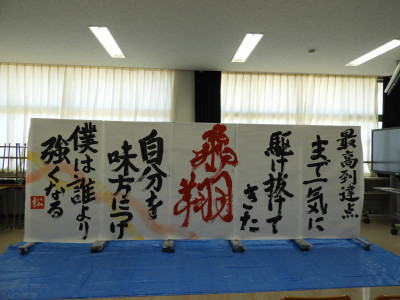 最高到達点
まで一気に
駆け抜けて
きた
飛翔
自分を
味方につけ
僕は誰より
強くなる
松